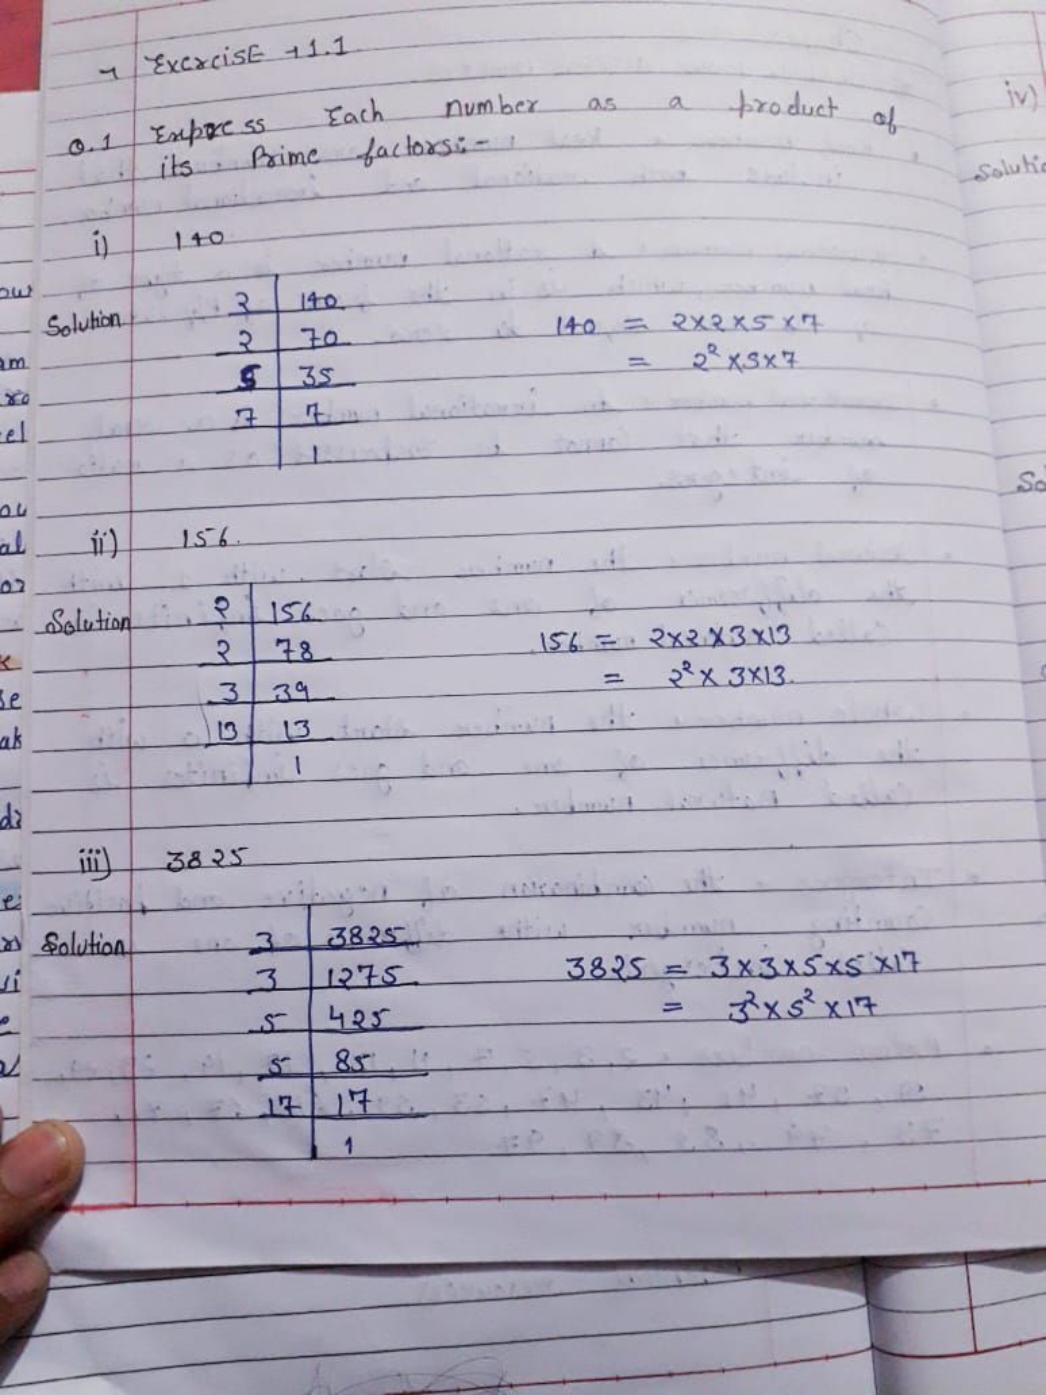 → Exercise → 1.1
Q.1 Express Each number as a product of
its Prime factors:-
i) 140
Solution
2 | 140
2 | 70
5 | 35
7 | 7
1
140 = 2×2×5×7
= 2² ×5×7
ii) 156.
Solution
2 | 156
2 | 78
3 | 39
13 | 13
1
156 = 2×2×3×13
= 2² × 3×13.
iii) 3825
Solution
3 | 3825
3 | 1275
5 | 425
5 | 85
17 | 17
1
3825 = 3×3×5×5×17
= 3²×5²×17
iv)